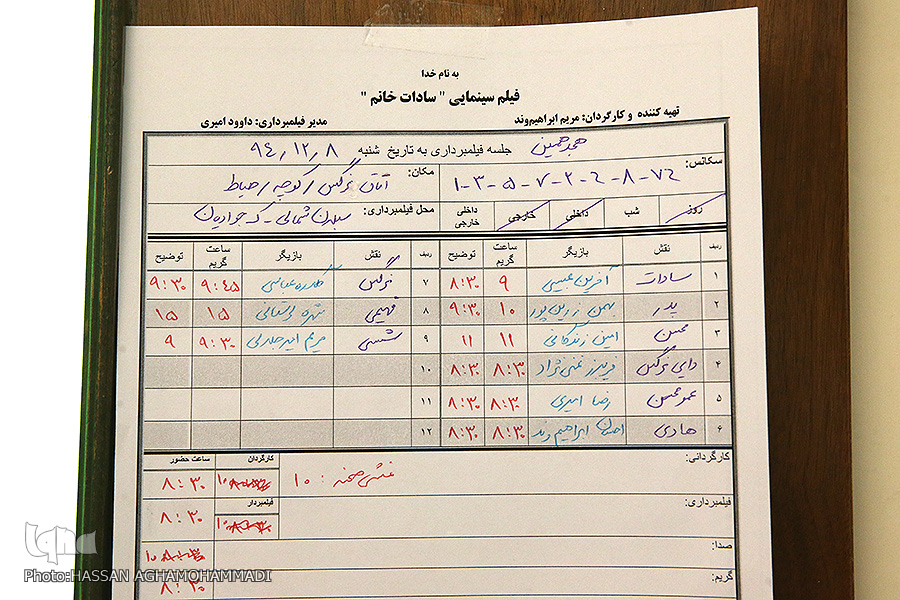 به نام خدا
فیلم سینمایی " سادات خانم "
تهیه کننده و کارگردان: مریم ابراهیم‌وند مدیر فیلمبرداری: داوود امیری
هجدهمین جلسه فیلمبرداری به تاریخ شنبه ۹۴٫۱۲٫۸
سکانس: ۷۴-۸-۴-۲-۷-۵-۳-۱ مکان: اتاق نرگس / کوچه / حیاط
روز شب داخلی خارجی داخلی خارجی محل فیلمبرداری:
ردیف نقش بازیگر ساعت گریم توضیح ردیف نقش بازیگر ساعت گریم توضیح
۱ سادات ۹ ۸:۳۰ ۷ نرگس ۹:۴۵ ۹:۳۰
۲ پدر بهمن زرین‌پور ۱۰ ۹:۳۰ ۸ فهیمی ۱۵ ۱۵
۳ محسن امین زندگانی ۱۱ ۱۱ ۹ شمسی مریم امیرجلالی ۹:۳۰ ۹
۴ دایی نرگس ۸:۳۰ ۸:۳۰ ۱۰
۵ عمو محسن رضا امیری ۸:۳۰ ۸:۳۰ ۱۱
۶ هادی احسان ابراهیم وند ۸:۳۰ ۸:۳۰ ۱۲
کارگردانی: منشی صحنه : ۱۰ کارگردان ۱۰ ساعت حضور ۸:۳۰
فیلمبرداری: فیلمبردار ۱۰ ۸:۳۰
صدا: ۱۰
گریم: ۸:۳۰
Photo:HASSAN AGHAMOHAMMADI